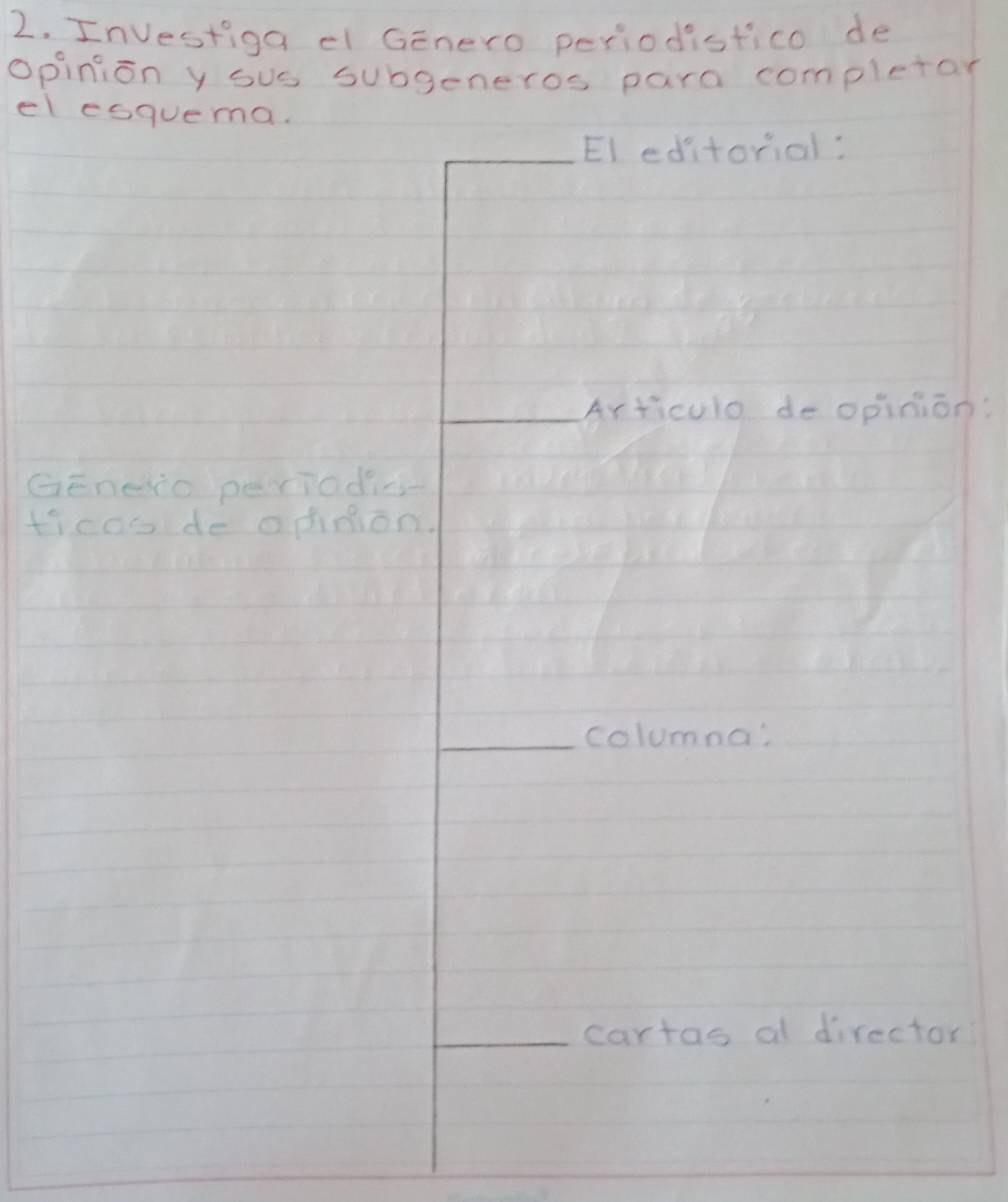 2. Investiga el Género periodistico de
opinión y sus subgeneros para completar
el esquema.
El editorial:
Articulo de opinión:
Género periodís-
ticos de opinión.
columna:
cartas al director: